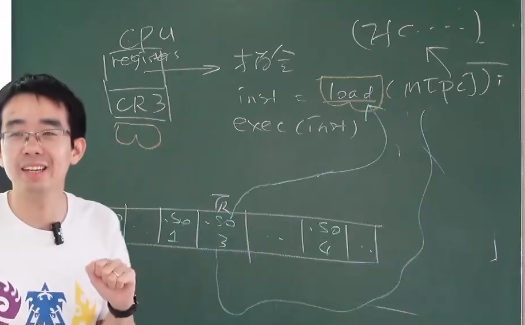 CPU
registers
CR3
指令
inst = load (M[PC]);
exec(inst)
R
.so
1
.so
3
..
.so
4
..